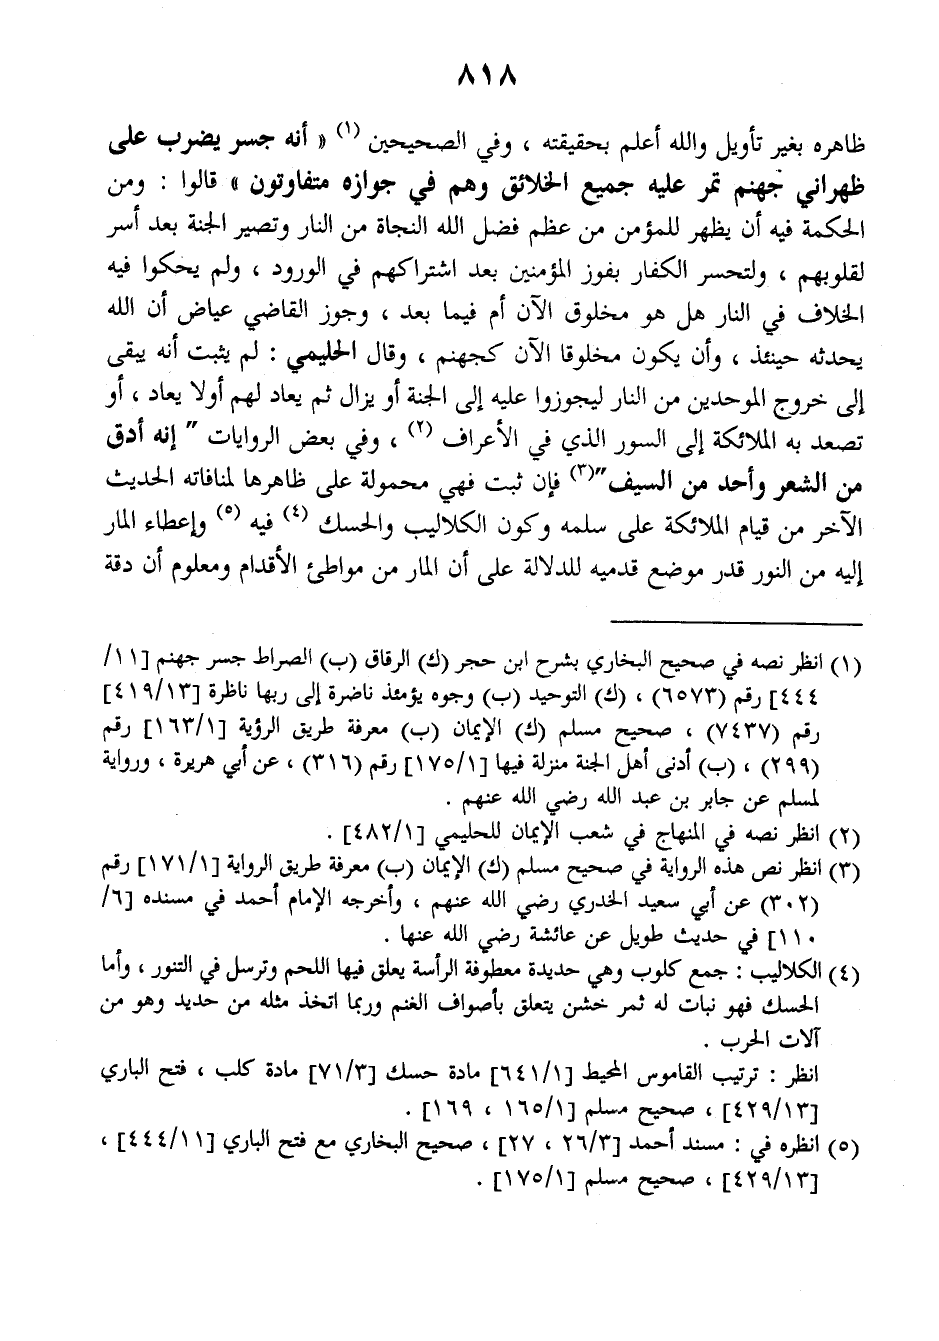 ٨١٨
ظاهره بغير تأويل والله أعلم بحقيقته ، وفي الصحيحين (١) « أنه جسر يضرب على
ظهراني جهنم تمر عليه جميع الخلائق وهم في جوازه متفاوتون » قالوا : ومن
الحكمة فيه أن يظهر للمؤمن من عظم فضل الله النجاة من النار وتصير الجنة بعد أسر
لقلوبهم ، ولتحسر الكفار بفوز المؤمنين بعد اشتراكهم في الورود ، ولم يحكوا فيه
الخلاف في النار هل هو مخلوق الآن أم فيما بعد ، وجوز القاضي عياض أن الله
يحدثه حينئذ ، وأن يكون مخلوقا الآن كجهنم ، وقال الحليمي : لم يثبت أنه يبقى
إلى خروج الموحدين من النار ليجوزوا عليه إلى الجنة أو يزال ثم يعاد لهم أولا يعاد ، أو
تصعد به الملائكة إلى السور الذي في الأعراف (٢) ، وفي بعض الروايات " إنه أدق
من الشعر وأحد من السيف"(٣) فإن ثبت فهي محمولة على ظاهرها لمنافاته الحديث
الآخر من قيام الملائكة على سلمه وكون الكلاليب والحسك (٤) فيه (٥) وإعطاء المار
إليه من النور قدر موضع قدميه للدلالة على أن المار من مواطئ الأقدام ومعلوم أن دقة
(١) انظر نصه في صحيح البخاري بشرح ابن حجر (ك) الرقاق (ب) الصراط جسر جهنم [١١/
٤٤٤] رقم (٦٥٧٣) ، (ك) التوحيد (ب) وجوه يؤمئذ ناضرة إلى ربها ناظرة [٤١٩/١٣]
رقم (٧٤٣٧) ، صحيح مسلم (ك) الإيمان (ب) معرفة طريق الرؤية [١٦٣/١] رقم
(٢٩٩) ، (ب) أدنى أهل الجنة منزلة فيها [١٧٥/١] رقم (٣١٦) ، عن أبي هريرة ، ورواية
لمسلم عن جابر بن عبد الله رضي الله عنهم .
(٢) انظر نصه في المنهاج في شعب الإيمان للحليمي [٤٨٢/١] .
(٣) انظر نص هذه الرواية في صحيح مسلم (ك) الإيمان (ب) معرفة طريق الرواية [١٧١/١] رقم
(٣٠٢) عن أبي سعيد الخدري رضي الله عنهم ، وأخرجه الإمام أحمد في مسنده [٦/
١١٠] في حديث طويل عن عائشة رضي الله عنها .
(٤) الكلاليب : جمع كلوب وهي حديدة معطوفة الرأسة يعلق فيها اللحم وترسل في التنور ، وأما
الحسك فهو نبات له ثمر خشن يتعلق بأصواف الغنم وربما اتخذ مثله من حديد وهو من
آلات الحرب .
انظر : ترتيب القاموس المحيط [٦٤١/١] مادة حسك [٧١/٣] مادة كلب ، فتح الباري
[٤٢٩/١٣] ، صحيح مسلم [١٦٥/١ ، ١٦٩] .
(٥) انظره في : مسند أحمد [٢٦/٣ ، ٢٧] ، صحيح البخاري مع فتح الباري [٤٤٤/١١] ،
[٤٢٩/١٣] ، صحيح مسلم [١٧٥/١] .